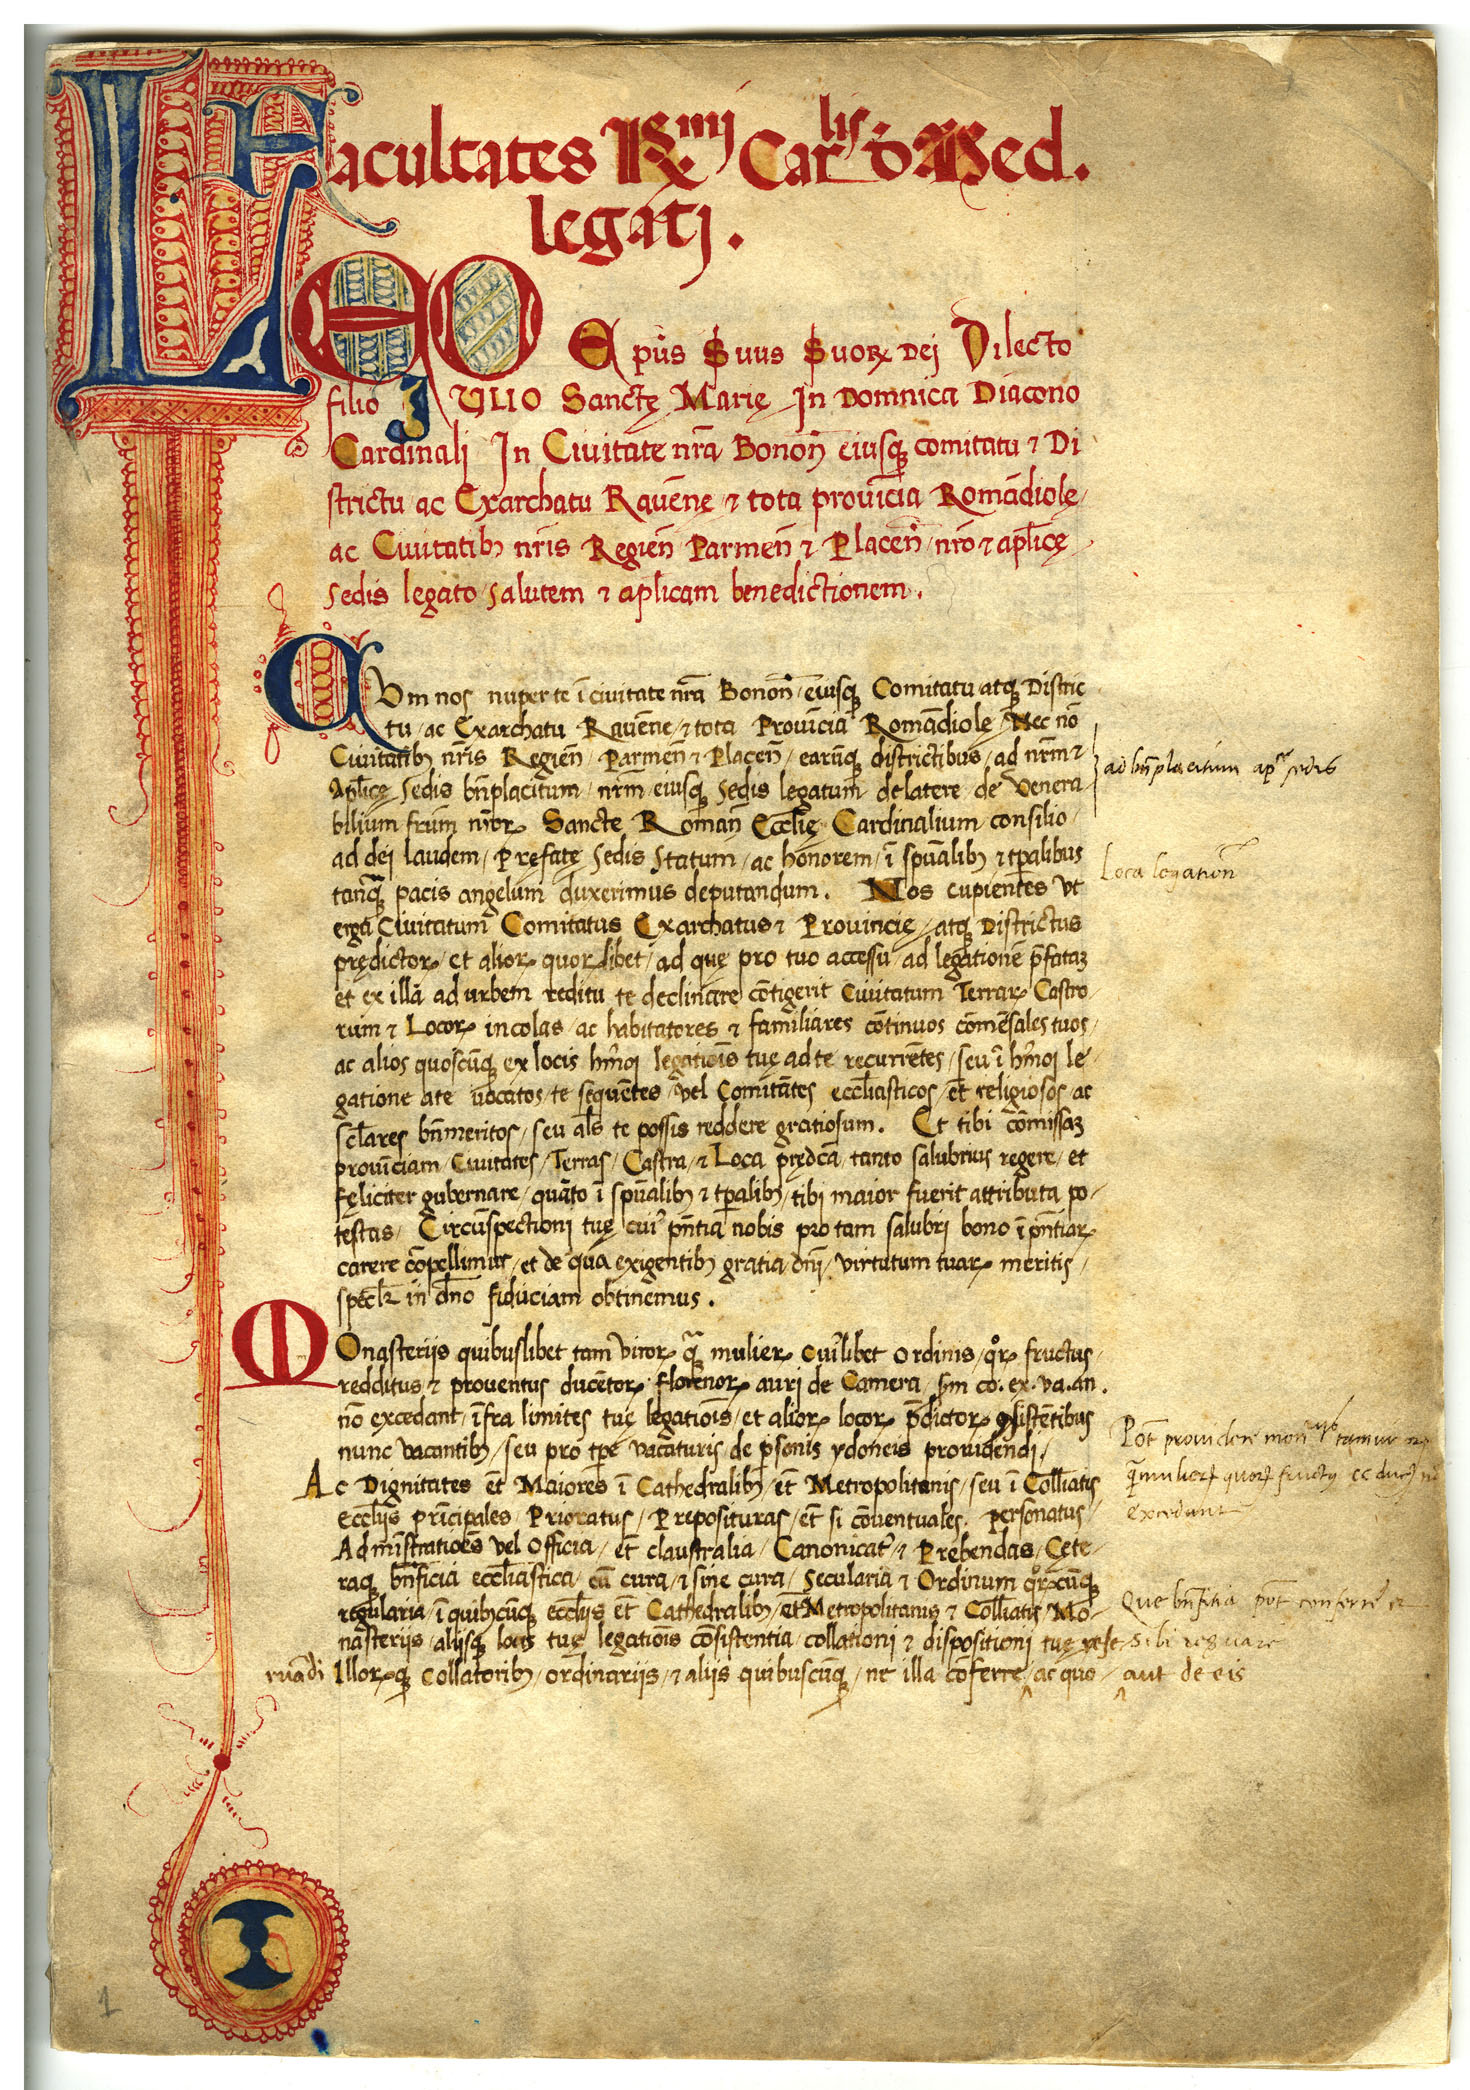 Facultates R.mi Car.lis d Med.
legati.
LEO Ep̄us Suus Suoꝝ Dei Dilecto
filio IULIO Sanctę Marię In Domnica Diacono
Cardinali In Ciuitate nr̄a Bonon̄ eiusqꝫ comitatu ⁊ Di
strictu ac Exarchatu Rauēnę ⁊ tota prouīcia Romādiolę
ac Ciuitatibꝫ nr̄is Regien̄ Parmen̄ ⁊ Placen̄ nr̄o ⁊ apl̄icę
Sedis legato salutem ⁊ aplicam benedictionem.
CUm nos nuper te ī ciuitate nr̄a Bonon̄ eiusqꝫ Comitatu atqꝫ Distric
tu / ac Exarchatu Rauēne / ⁊ tota Prouīcia Romādiolę / Nec nō
Ciuitatibꝫ nr̄is Regien̄ / Parmen̄ ⁊ Placen̄ / earūqꝫ districtibus / ad nr̄m ⁊
Apl̄icę Sedis bn̄placitum / nr̄m eiusqꝫ Sedis legatum de latere de venera
bilium fr̄um nr̄oꝝ Sancte Roman̄ Eccl̄ię Cardinalium consilio /
ad dei laudem / Pręfatę Sedis Statum / ac honorem / ī spūalibꝫ ⁊ tp̄alibus
tanqꝫ̄ pacis angelum duxerimus deputandum. Nos cupientes vt
erga Ciuitatum Comitatus Exarchatus ⁊ Prouincię / atqꝫ Districtus
prędictoꝝ / et alioꝝ quoꝝlibet / ad quę pro tuo accessu / ad legationē p̄fataꝫ
et ex illa ad urbem reditu te declinare cōtigerit Ciuitatum Terraꝝ Castro
rum ⁊ Locoꝝ incolas / ac habitatores ⁊ familiares cōtinuos cōmēsales tuos /
ac alios quoscūqꝫ ex locis hm̄oi legatiōis tuę ad te recurrētes / seu ī hm̄oi le
gatione a te uocatos / te sequētes / vel Comitātes eccl̄iasticos / et religiosos ac
scl̄ares bn̄meritos / seu al̄s te possis reddere gratiosum. Et tibi cōmissaꝫ
prouīciam / Ciuitates / Terras / Castra / ⁊ Loca prędc̄a / tanto salubrius regere / et
fęliciter gubernare / quāto ī spūalibꝫ ⁊ tp̄alibꝫ / tibi maior fuerit attributa po-
testas / Circūspectioni tuę cui' pn̄tia nobis pro tam salubri bono ī pn̄tiaꝝ
carere cōpellimur / et de qua exigentibꝫ gratia dn̄i / virtutum tuaꝝ meritis /
speclr̄ in dn̄o fiduciam obtinemus.
MOnasteriis quibuslibet tam viroꝝ qꝫ̄ mulieꝝ cui'libet ordinis / qͦꝝ fructus /
redditus ⁊ prouentus ducētoꝝ florenoꝝ auri de Camera / sm̄ co. ex. va. an.
nō excedant / īfra limites tuę legatiōis / et alioꝝ locoꝝ p̄dictoꝝ ꝯsistētibus
nunc vacantibꝫ / seu pro tp̄e vacaturis de p̄sonis ydoneis prouidendi /
Ac Dignitates et̄ Maiores ī Cathedralibꝫ / et̄ Metropolitanis / seu ī Coll̄iatis
Eccl̄ijs prīcipales / Prioratus / Preposituras / et̄ si cōuentuales. personatus /
Adminꝭstratioēs vel officia / et̄ claustralia / Canonicat' ⁊ Prebendas / Cęte-
raqꝫ bn̄ficia eccl̄iastica / cū cura / ⁊ sine cura / Secularia ⁊ Ordinum qͦꝝcūqꝫ
regularia / ī quibꝫcūqꝫ eccl̄ijs et̄ Cathedralibꝫ / et̄ Metropolitanis ⁊ Coll̄iatis / Mo-
nasteriis / aliisqꝫ locis tuę legatiōis cōsistentia / collationi ⁊ dispositioni tuę rese
ruādi Illoꝝqꝫ Collatoribꝫ / ordinariis / ⁊ aliis quibuscūqꝫ / ne illa cōferre / ac quo /
ad bn̄placitum ap. sedis
Loca legation̄
Pōt prouidere mon tam
qꝫ̄ mulieꝝ quoꝝ fructus cc duc
excedant
Que bn̄fitia pōt conferre et
sibi reseruare
aut de eis
I
1